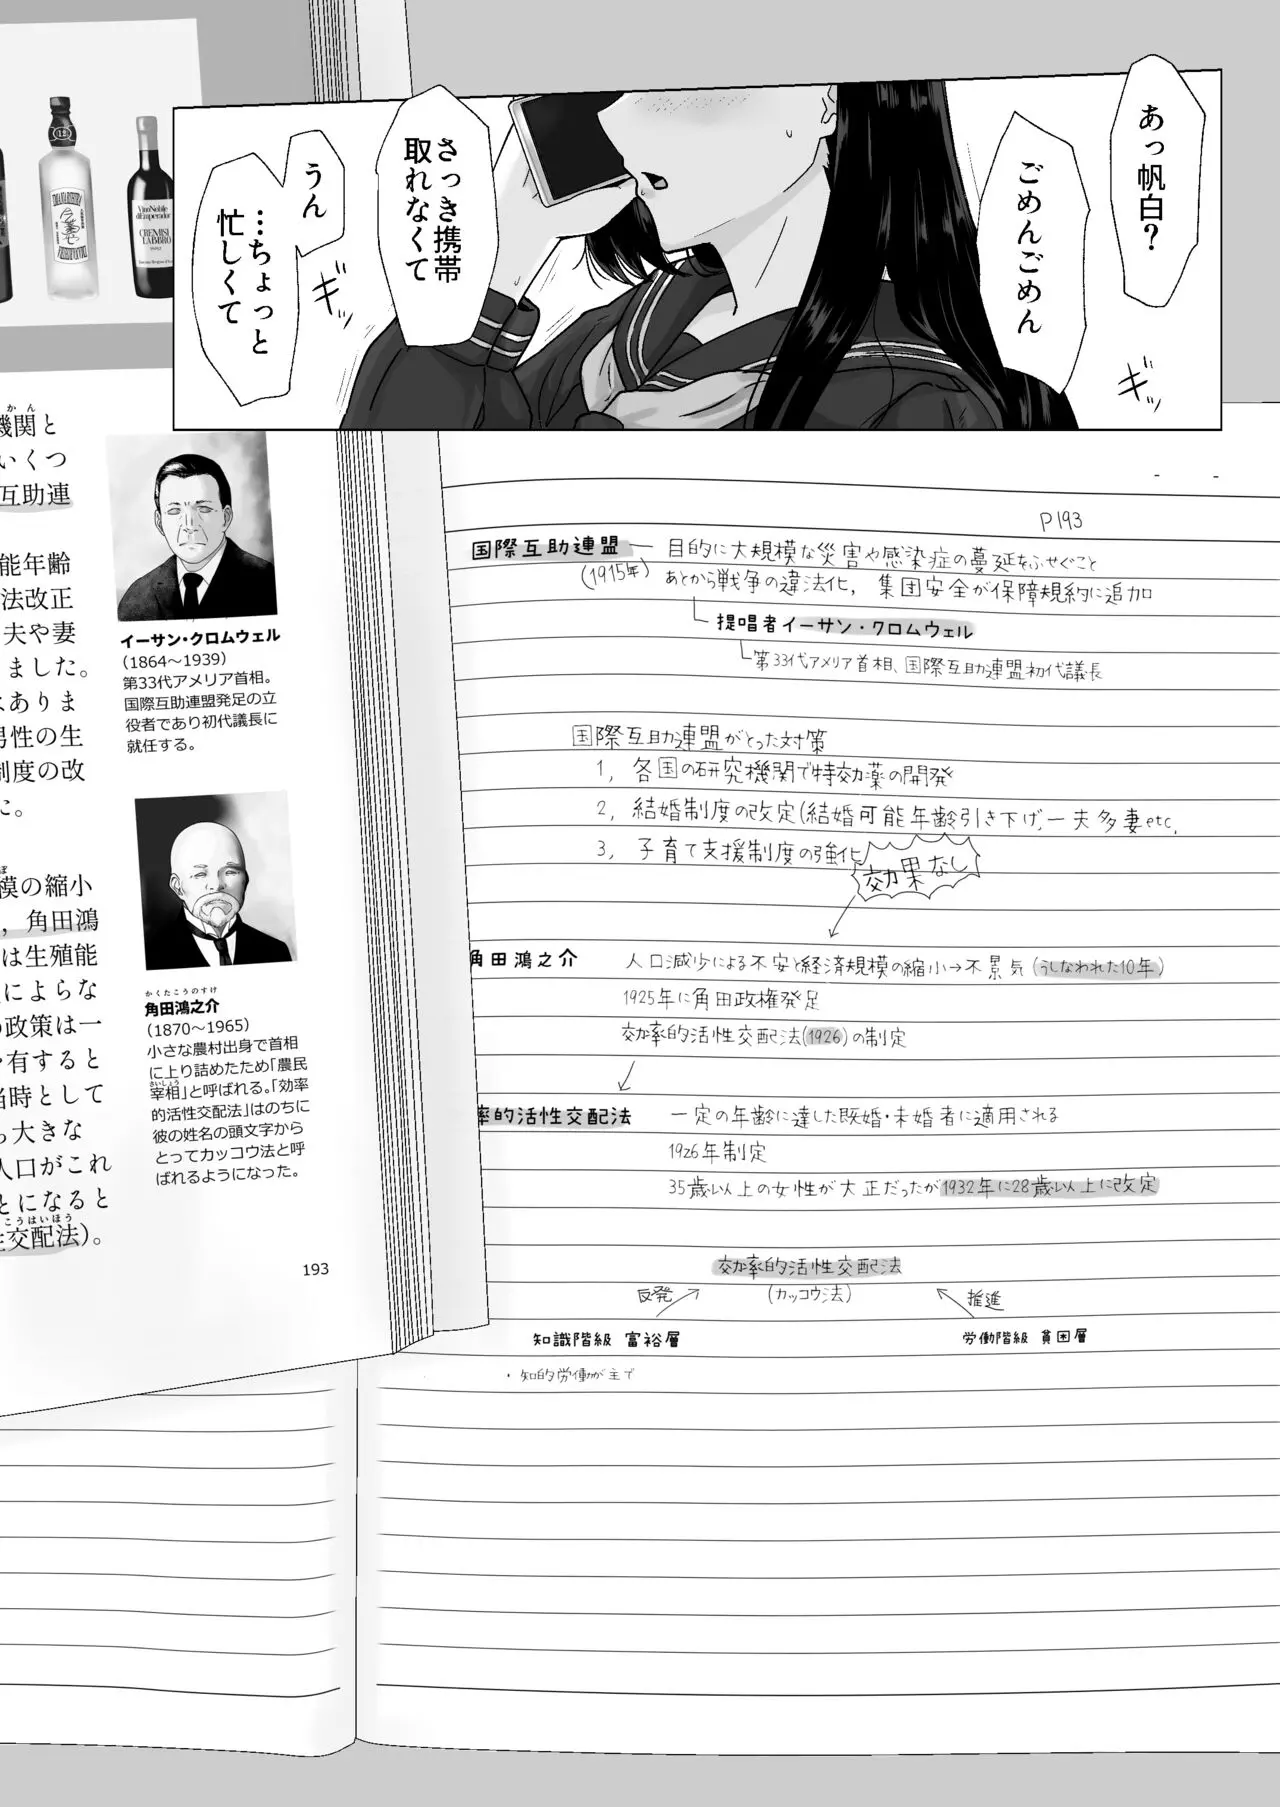 あっ帆白?
ごめんごめん
さっき携帯
取れなくて
うん
…ちょっと
忙しくて
ギッ
ギッ
12
Vino Nobile
d'Emperador
CREMISI
LABBRO
かん
機関と
いくつ
互助連
能年齢
法改正
夫や妻
りました。
はありま
男性の生
制度の改
た。
ぼ
模の縮小
，角田鴻
は生殖能
によらな
の政策は一
や有すると
当時として
も大きな
人口がこれ
とになると
こうはいほう
性交配法)。
イーサン・クロムウェル
(1864～1939)
第33代アメリア首相。
国際互助連盟発足の立
役者であり初代議長に
就任する。
かくたこうのすけ
角田鴻之介
(1870～1965)
小さな農村出身で首相
に上り詰めたため「農民
さいしょう
宰相」と呼ばれる。「効率
的活性交配法」はのちに
彼の姓名の頭文字から
とってカッコウ法と呼
ばれるようになった。
193
P193
国際互助連盟 ― 目的に大規模な災害や感染症の蔓延をふせぐこと
(1915年) あとから戦争の違法化, 集団安全が保障規約に追加
提唱者イーサン・クロムウェル
第33代アメリア首相、国際互助連盟初代議長
国際互助連盟がとった対策
1, 各国の研究機関で特効薬の開発
2, 結婚制度の改定(結婚可能年齢引き下げ, 一夫多妻etc,
3, 子育て支援制度の強化
効果なし
角田鴻之介 人口減少による不安と経済規模の縮小→不景気(うしなわれた10年)
1925年に角田政権発足
効率的活性交配法(1926)の制定
率的活性交配法 一定の年齢に達した既婚・未婚者に適用される
1926年制定
35歳以上の女性が大正だったが1932年に28歳以上に改定
効率的活性交配法
(カッコウ法)
反発
推進
知識階級 富裕層
労働階級 貧困層
・知的労働が主で